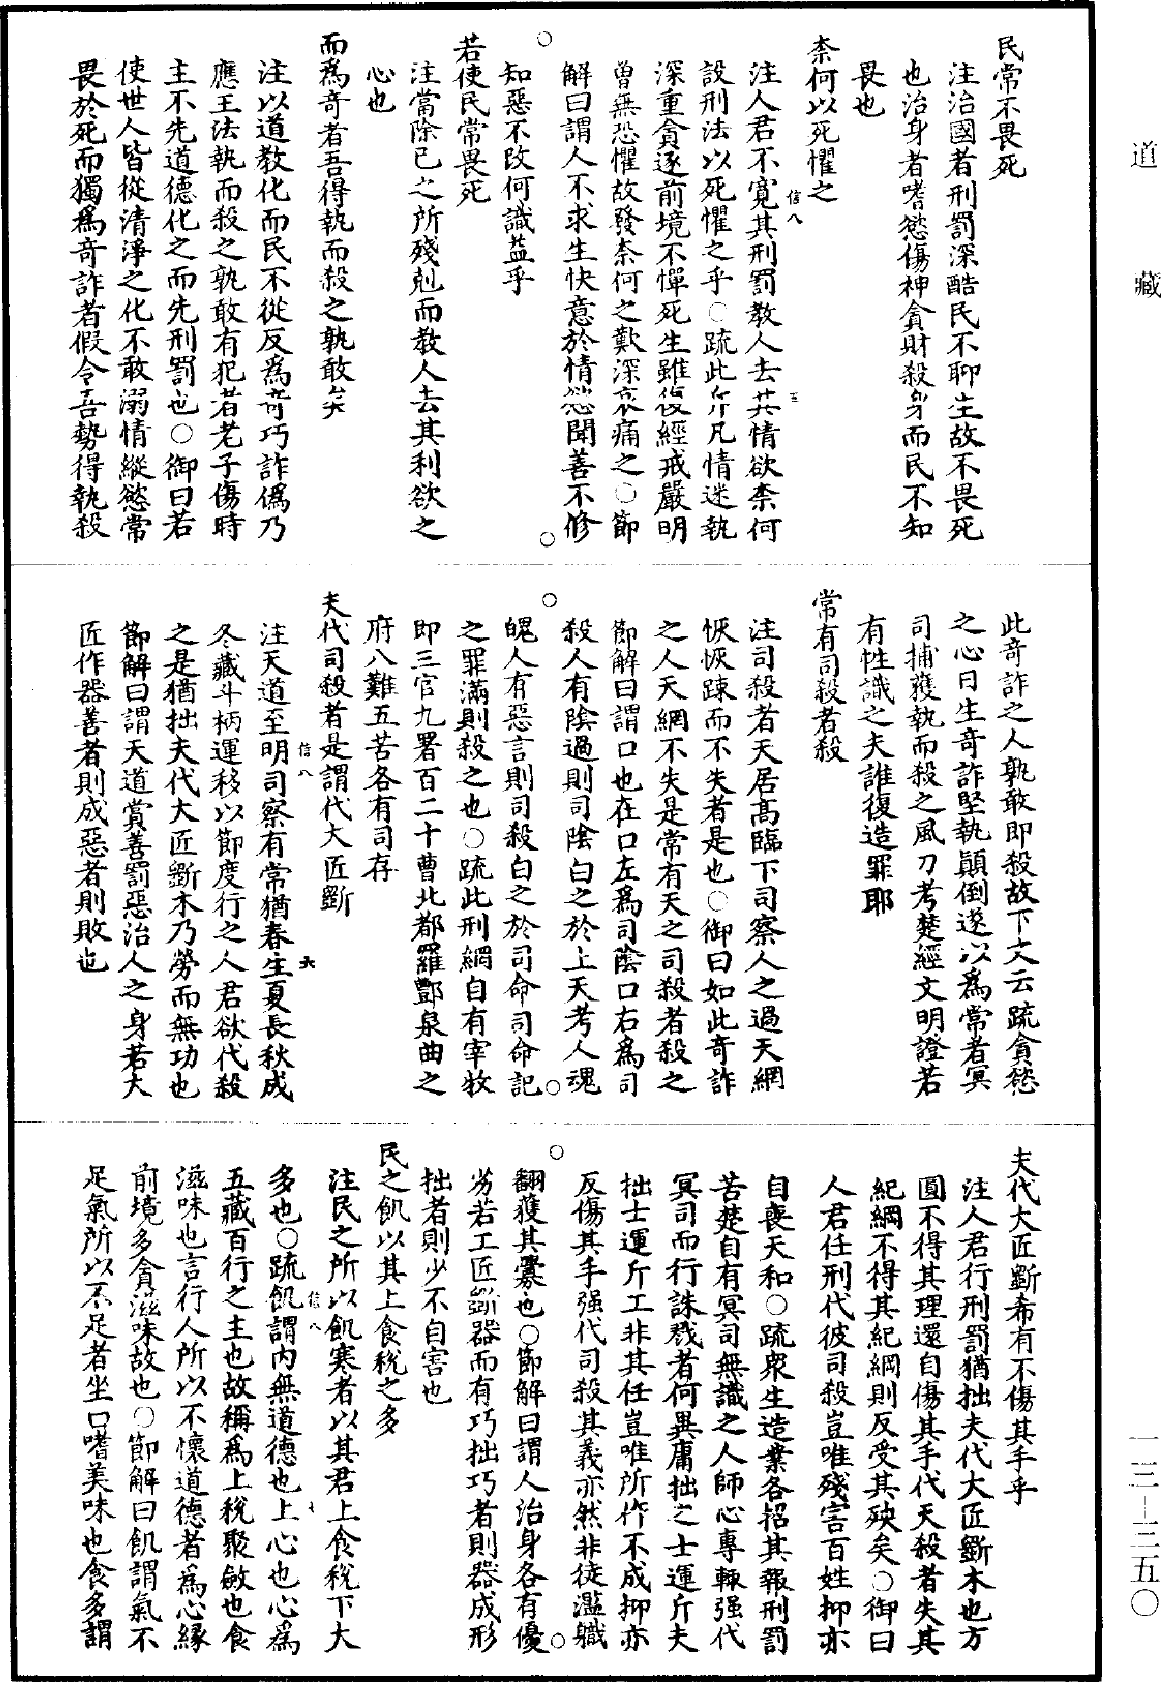 道藏
一三—三五〇
民常不畏死
注治國者刑罰深酷民不聊生故不畏死
也治身者嗜慾傷神貪財殺身而民不知
畏也
柰何以死懼之
信八
五
注人君不寬其刑罰教人去其情欲柰何
設刑法以死懼之乎○疏此斥凡情迷執
深重貪逐前境不憚死生雖復經戒嚴明
曾無恐懼故發柰何之歎深哀痛之○節
解曰謂人不求生快意於情慾聞善不修
知惡不改何識益乎
若使民常畏死
注當除已之所殘剋而教人去其利欲之
心也
而爲奇者吾得執而殺之孰敢矣
注以道教化而民不從反爲奇巧詐僞乃
應王法執而殺之孰敢有犯者老子傷時
主不先道德化之而先刑罰也○御曰若
使世人皆從清淨之化不敢溺情縱慾常
畏於死而獨爲奇詐者假令吾勢得執殺
此奇詐之人孰敢即殺故下文云疏貪慾
之心日生奇詐堅執顛倒遂以爲常者冥
司捕獲執而殺之風刀考楚經文明證若
有性識之夫誰復造罪耶
常有司殺者殺
注司殺者天居高臨下司察人之過天網
恢恢踈而不失者是也○御曰如此奇詐
之人天網不失是常有天之司殺者殺之
節解曰謂口也在口左爲司陰口右爲司
殺人有陰過則司陰白之於上天考人魂
魄人有惡言則司殺白之於司命司命記
之罪滿則殺之也○疏此刑網自有宰牧
即三官九署百二十曹北都羅酆泉曲之
府八難五苦各有司存
夫代司殺者是謂代大匠斲
信八
六
注天道至明司察有常猶春生夏長秋成
冬藏斗柄運移以節度行之人君欲代殺
之是猶拙夫代大匠斲木乃勞而無功也
節解曰謂天道賞善罰惡治人之身若大
匠作器善者則成惡者則敗也
夫代大匠斲希有不傷其手乎
注人君行刑罰猶拙夫代大匠斲木也方
圓不得其理還自傷其手代天殺者失其
紀綱不得其紀綱則反受其殃矣○御曰
人君任刑代彼司殺豈唯殘害百姓抑亦
自喪天和○疏衆生造業各招其報刑罰
苦楚自有冥司無識之人師心專輙强代
冥司而行誅戮者何異庸拙之士運斤夫
拙士運斤工非其任豈唯所作不成抑亦
反傷其手强代司殺其義亦然非徒濫職
翻獲其釁也○節解曰謂人治身各有優
劣若工匠斲器而有巧拙巧者則器成形
拙者則少不自害也
民之飢以其上食稅之多
注民之所以飢寒者以其君上食稅下大
多也○疏飢謂内無道德也上心也心爲
信八
七
五藏百行之主也故稱爲上稅聚斂也食
滋味也言行人所以不懷道德者爲心緣
前境多貪滋味故也○節解曰飢謂氣不
足氣所以不足者坐口嗜美味也食多謂